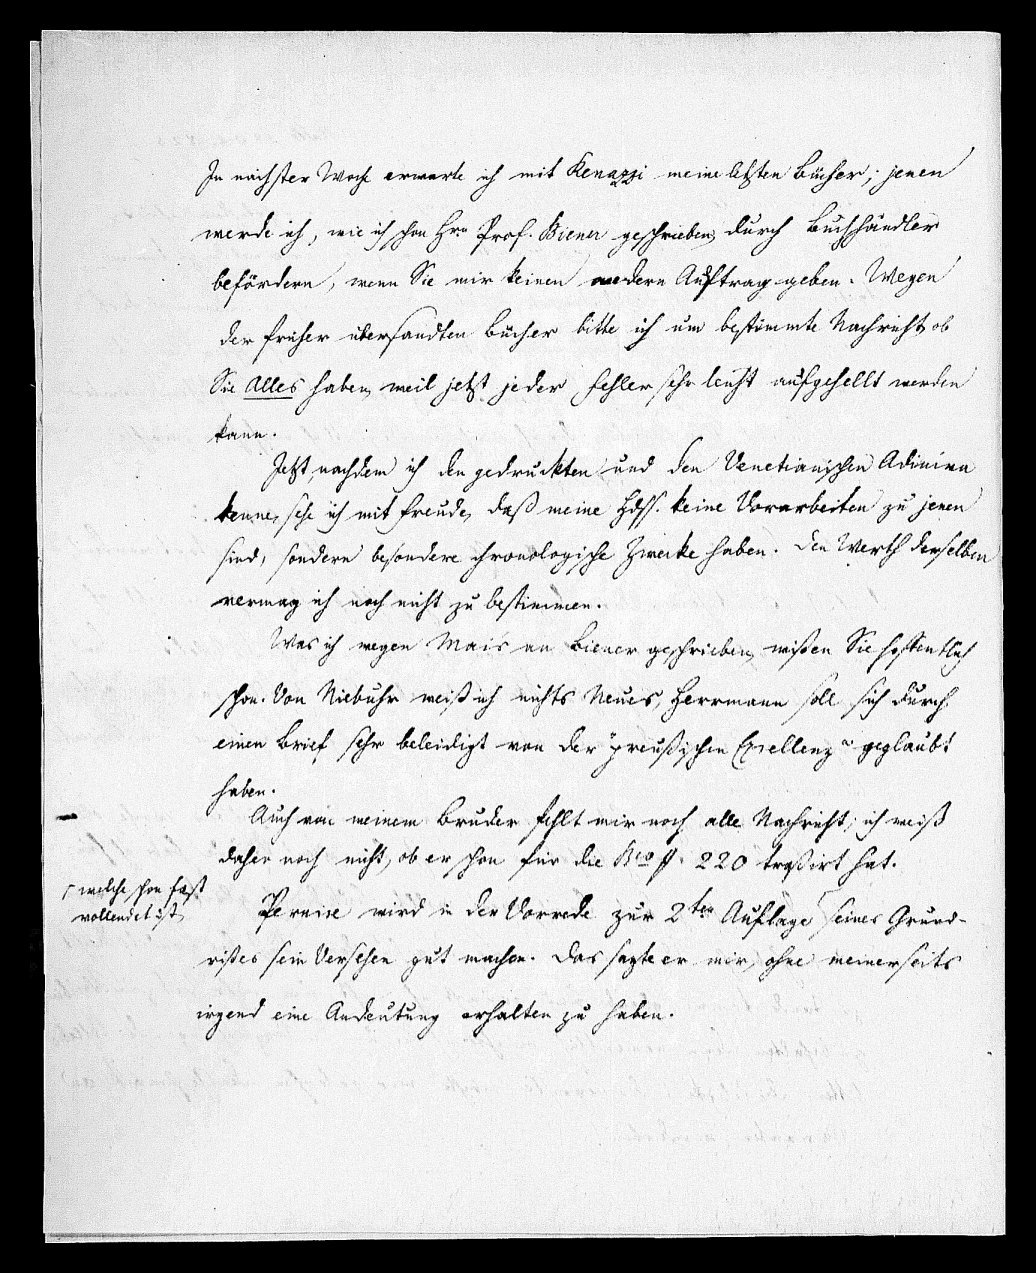 In nächster Woche erwarte ich mit Renazzi meine letzten Bücher; jenen
werde ich, wie ich schon Hrn Prof. Biener geschrieben, durch Buchhändler
befördern, wenn Sie mir keinen andern Auftrag geben. Wegen
der früher übersandten Bücher bitte ich um bestimmte Nachricht, ob
Sie Alles haben, weil jetzt jeder Fehler sehr leicht aufgehellt werden
kann.
Jetzt, nachdem ich den gedruckten und den Venetianischen
kenne, sehe ich mit Freude, daß meine Hdss. keine Vorarbeiten zu jenen
sind, sondern besondere chronologische Zwecke haben. Den Werth derselben
vermag ich noch nicht zu bestimmen.
Was ich wegen Mai's an Biener geschrieben, wißen Sie hoffentlich
schon. Von Niebuhr weiß ich nichts Neues, Herrmann soll sich durch
einen Brief sehr beleidigt von der "preußischen Excellenz" geglaubt
haben.
Auch von meinem Bruder fehlt mir noch alle Nachricht; ich weiß
daher noch nicht, ob er schon für die 220 traßirt hat.
welche schon fast
vollendet ist,
Pernice wird in der Vorrede zur 2ten Auflage seines Grund-
rißes sein Versehen gut machen. Das sagte er mir, ohne meinerseits
irgend eine Andeutung erhalten zu haben.